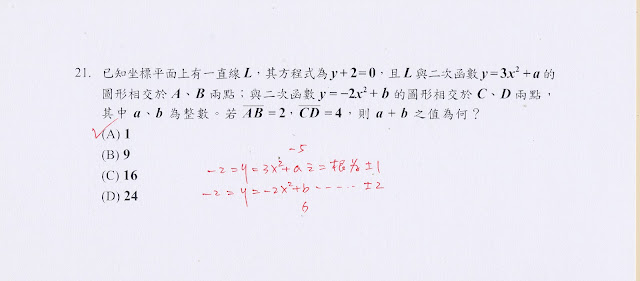 21. 已知坐標平面上有一直線 L，其方程式為 y+2=0，且 L 與二次函數 y=3x²+a 的
圖形相交於 A、B 兩點；與二次函數 y=-2x²+b 的圖形相交於 C、D 兩點，
其中 a、b 為整數。若 A̅B̅=2，C̅D̅=4，則 a+b 之值為何？
✓(A) 1
(B) 9
(C) 16
(D) 24
-5
-2=y=3x²+a 之=根為±1
-2=y=-2x²+b ------ ±2
6